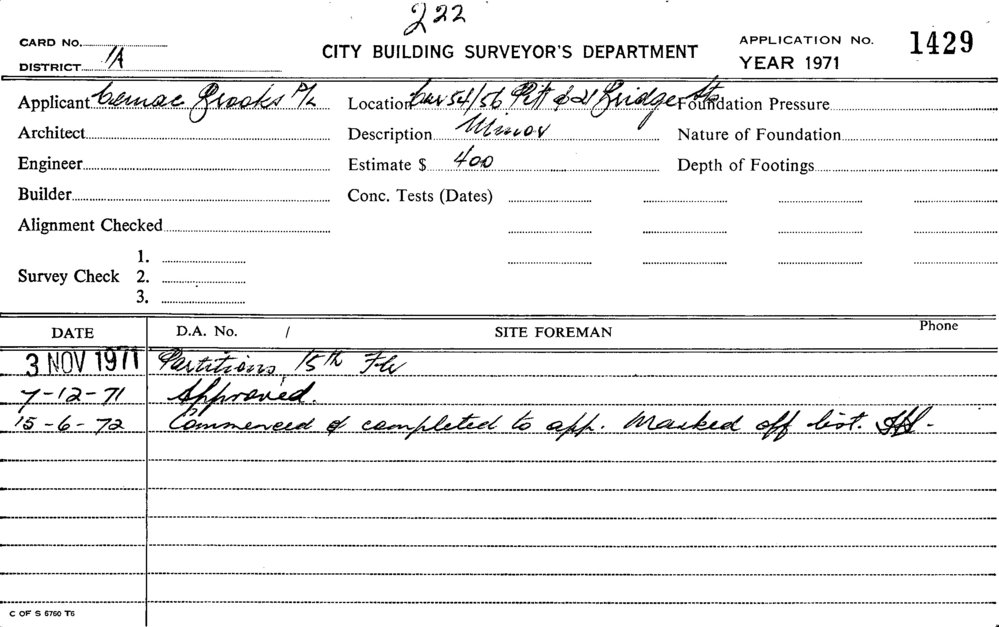 222
CARD No.
CITY BUILDING SURVEYOR'S DEPARTMENT
APPLICATION No. 1429
DISTRICT 1A
YEAR 1971
Applicant Cemac Brooks P/L
Location Cnr 54/56 Pitt & 21 Bridge Sts
Foundation Pressure
Architect
Description Minor
Nature of Foundation
Engineer
Estimate $ 400
Depth of Footings
Builder
Conc. Tests (Dates)
Alignment Checked
Survey Check 1.
2.
3.
DATE
D.A. No. /
SITE FOREMAN
Phone
3 NOV 1971 Partitions 15th Flr
7-12-71 Approved.
15-6-72 Commenced & completed to app. Marked off list.
C OF S 6760 T6